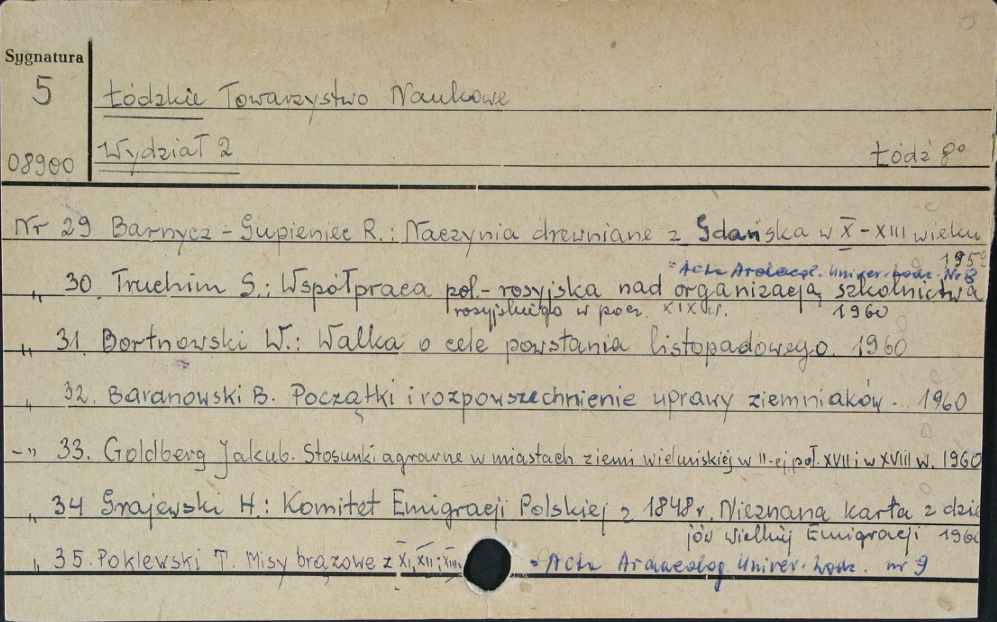 Sygnatura
5
Łódzkie Towarzystwo Naukowe
Wydział 2 Łódź 8°
08900
Nr 29 Barnycz-Gupieniec R.: Naczynia drewniane z Gdańska w X-XIII wieku
195
= Acta Archaeol. Univer. Lodz. Nr 8
„ 30. Truchim S.: Współpraca pol.-rosyjska nad organizacją szkolnictwa
rosyjskiego w pocz. XIX w. 1960
„ 31. Bortnowski W.: Walka o cele powstania listopadowego. 1960
„ 32. Baranowski B. Początki i rozpowszechnienie uprawy ziemniaków. 1960
-„ 33. Goldberg Jakub. Stosunki agrarne w miastach ziemi wieluńskiej w II-ej poł. XVII i w XVIII w. 1960
„ 34 Grajewski H.: Komitet Emigracji Polskiej z 1848 r. Nieznana karta z dzie
jów Wielkiej Emigracji 1960
„ 35. Poklewski T. Misy brązowe z XI, XII i XIII = Acta Archaeolog. Univer. Lodz. nr 9